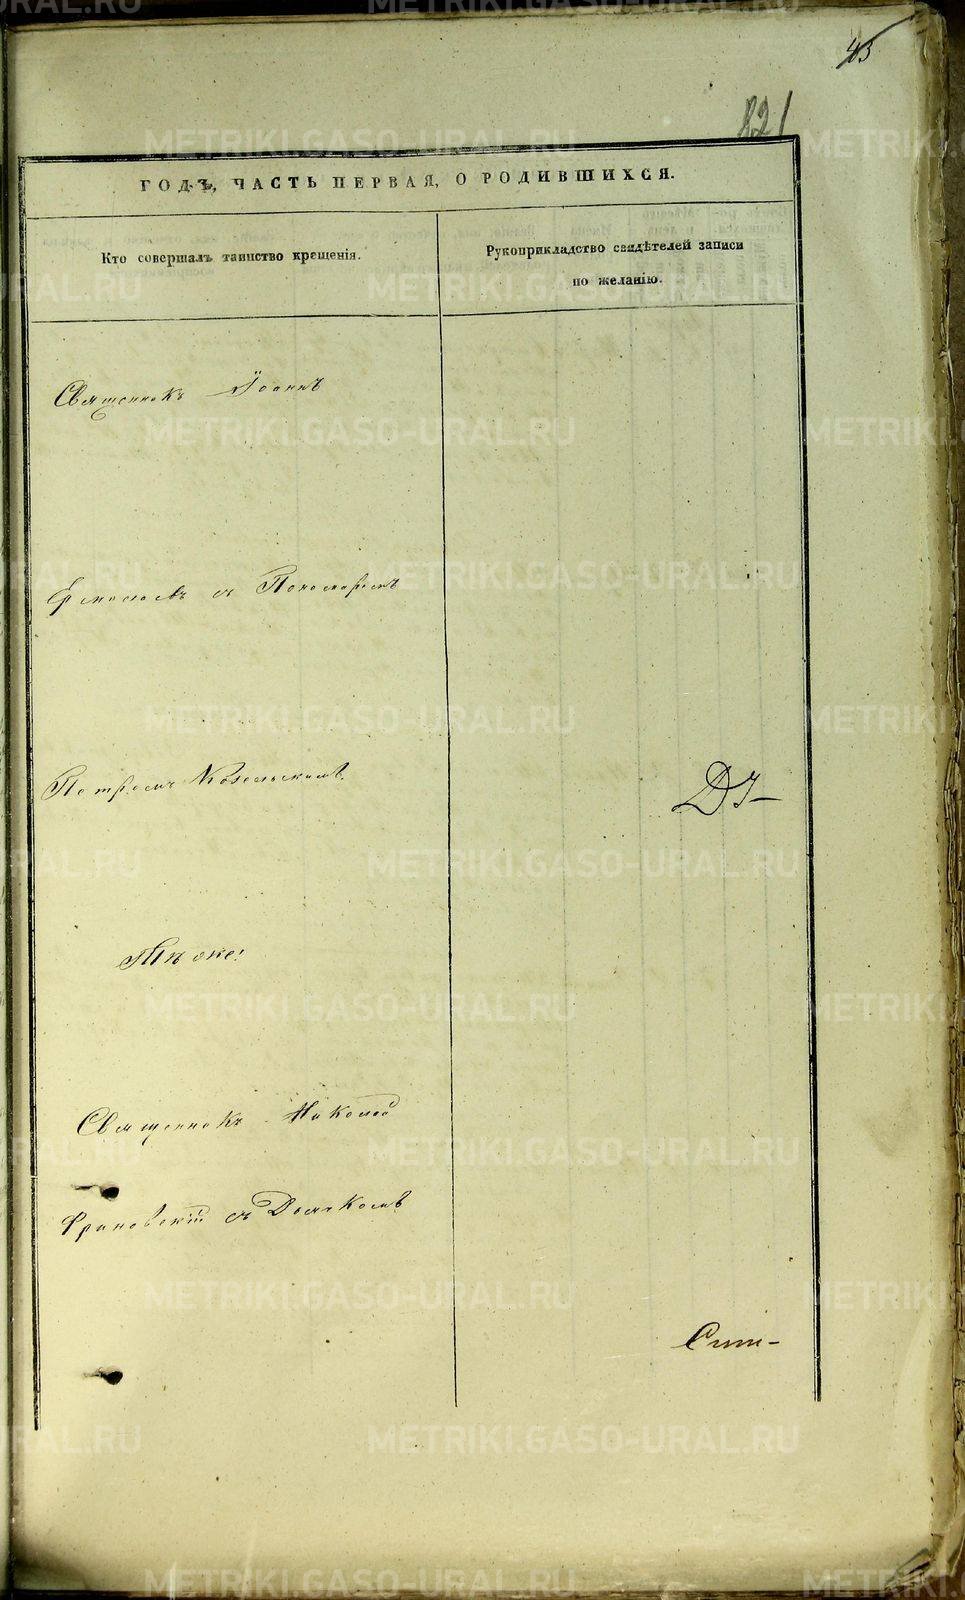 45
821
ГОДЪ, ЧАСТЬ ПЕРВАЯ, О РОДИВШИХСЯ.
Кто совершалъ таинство крещенія.
Рукоприкладство свидѣтелей записи
по желанію.
Священникъ Іоаннъ
съ Пономаремъ
Петромъ Козельскимъ.
Тѣ же!
Священникъ Николай
съ Дьякомъ
METRIKI.GASO-URAL.RU